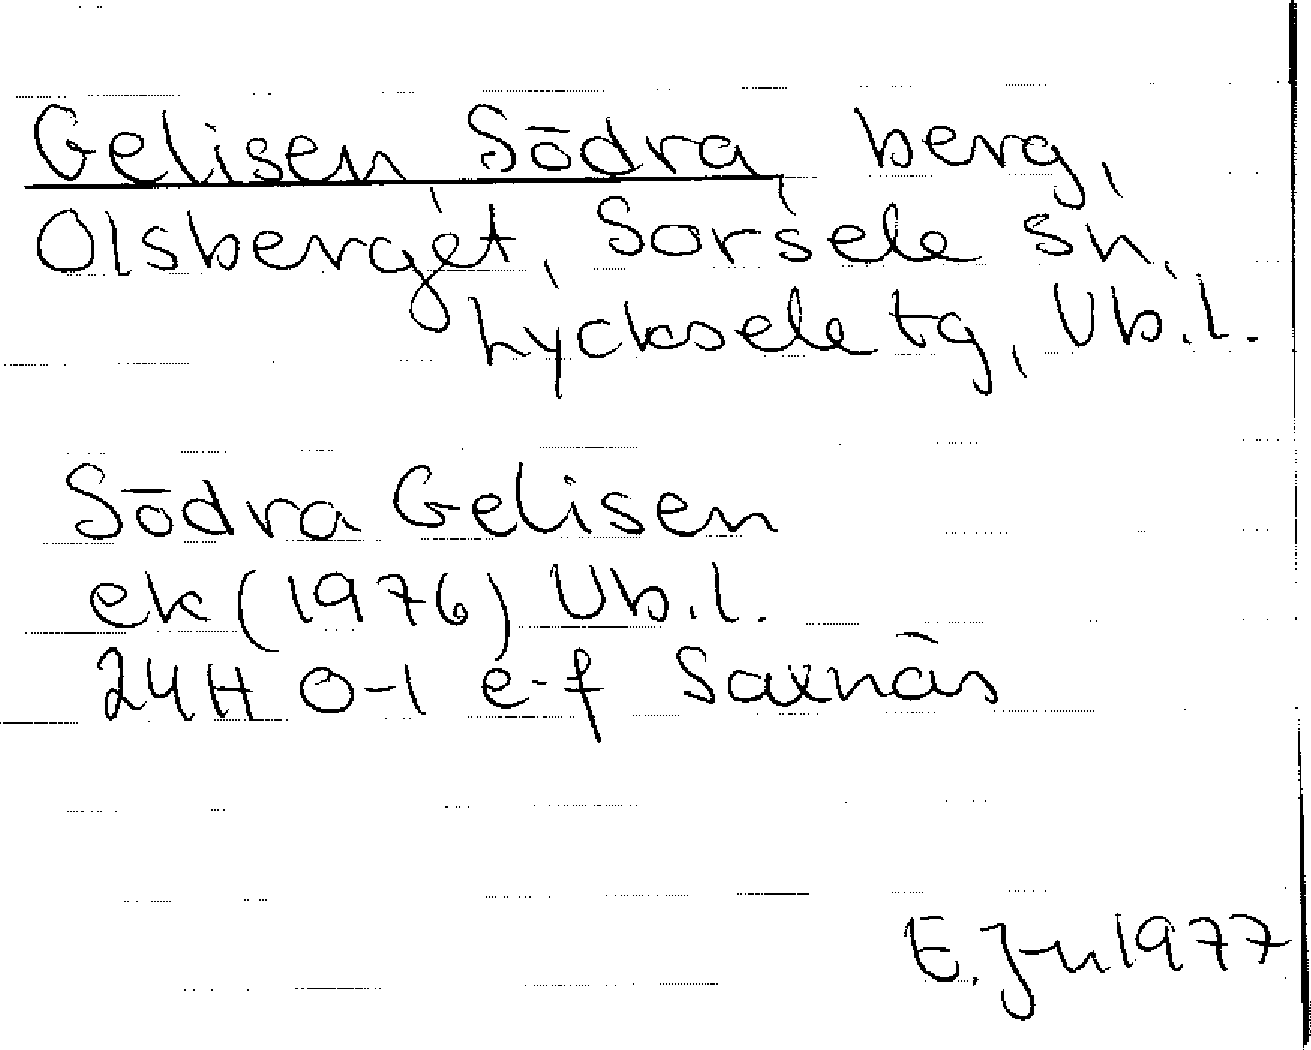 Gelisen Södra, berg,
Olsberget, Sorsele sn,
Lycksele tg, Vb.l.
Södra Gelisen
ek (1976) Vb.l.
24H 0-1 e-f Saxnäs
E. J-n 1977